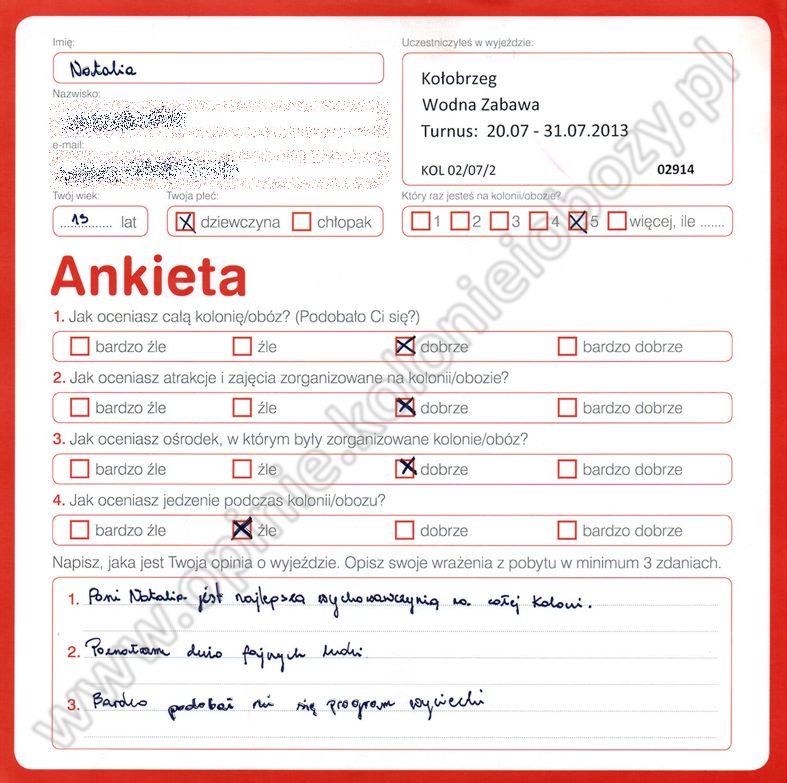 Imię:
Natalia
Nazwisko:
e-mail:
Twój wiek:
13 lat
Twoja płeć:
dziewczyna chłopak
Uczestniczyłeś w wyjeździe:
Kołobrzeg
Wodna Zabawa
Turnus: 20.07 - 31.07.2013
KOL 02/07/2 02914
Który raz jesteś na kolonii/obozie?
1 2 3 4 5 więcej, ile .......
Ankieta
1. Jak oceniasz całą kolonię/obóz? (Podobało Ci się?)
bardzo źle źle dobrze bardzo dobrze
2. Jak oceniasz atrakcje i zajęcia zorganizowane na kolonii/obozie?
bardzo źle źle dobrze bardzo dobrze
3. Jak oceniasz ośrodek, w którym były zorganizowane kolonie/obóz?
bardzo źle źle dobrze bardzo dobrze
4. Jak oceniasz jedzenie podczas kolonii/obozu?
bardzo źle źle dobrze bardzo dobrze
Napisz, jaka jest Twoja opinia o wyjeździe. Opisz swoje wrażenia z pobytu w minimum 3 zdaniach.
1. Pani Natalia jest najlepszą wychowawczynią na całej Koloni.
2. Poznałam dużo fajnych ludzi.
3. Bardzo podobał mi się program wycieczki
www.opinie.kolonieiobozy.pl